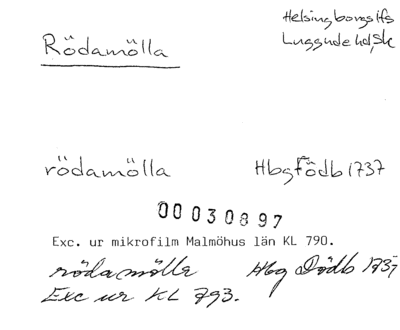 Helsingborgs lfs
Rödamölla
Luggude hd, Sk
rödamölla HbgFödb 1737
00030897
Exc. ur mikrofilm Malmöhus län KL 790.
röda mölle Hbg Dödb 1737
Exc ur KL 793.